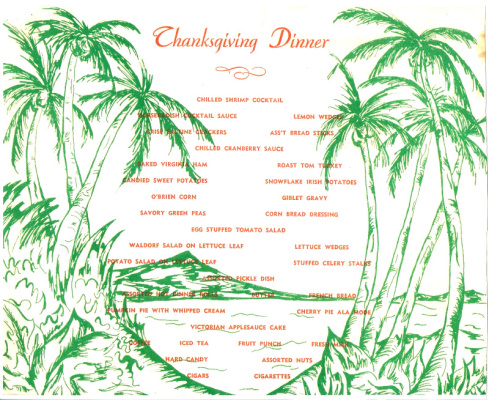 Thanksgiving Dinner
CHILLED SHRIMP COCKTAIL
HORSERADISH COCKTAIL SAUCE LEMON WEDGES
CRISP SALTINE CRACKERS ASS'T BREAD STICKS
CHILLED CRANBERRY SAUCE
BAKED VIRGINIA HAM ROAST TOM TURKEY
CANDIED SWEET POTATOES SNOWFLAKE IRISH POTATOES
O'BRIEN CORN GIBLET GRAVY
SAVORY GREEN PEAS CORN BREAD DRESSING
EGG STUFFED TOMATO SALAD
WALDORF SALAD ON LETTUCE LEAF LETTUCE WEDGES
POTATO SALAD ON LETTUCE LEAF STUFFED CELERY STALKS
ASSORTED PICKLE DISH
ASSORTED HOT DINNER ROLLS BUTTER FRENCH BREAD
PUMPKIN PIE WITH WHIPPED CREAM CHERRY PIE ALA MODE
VICTORIAN APPLESAUCE CAKE
COFFEE ICED TEA FRUIT PUNCH FRESH MILK
HARD CANDY ASSORTED NUTS
CIGARS CIGARETTES